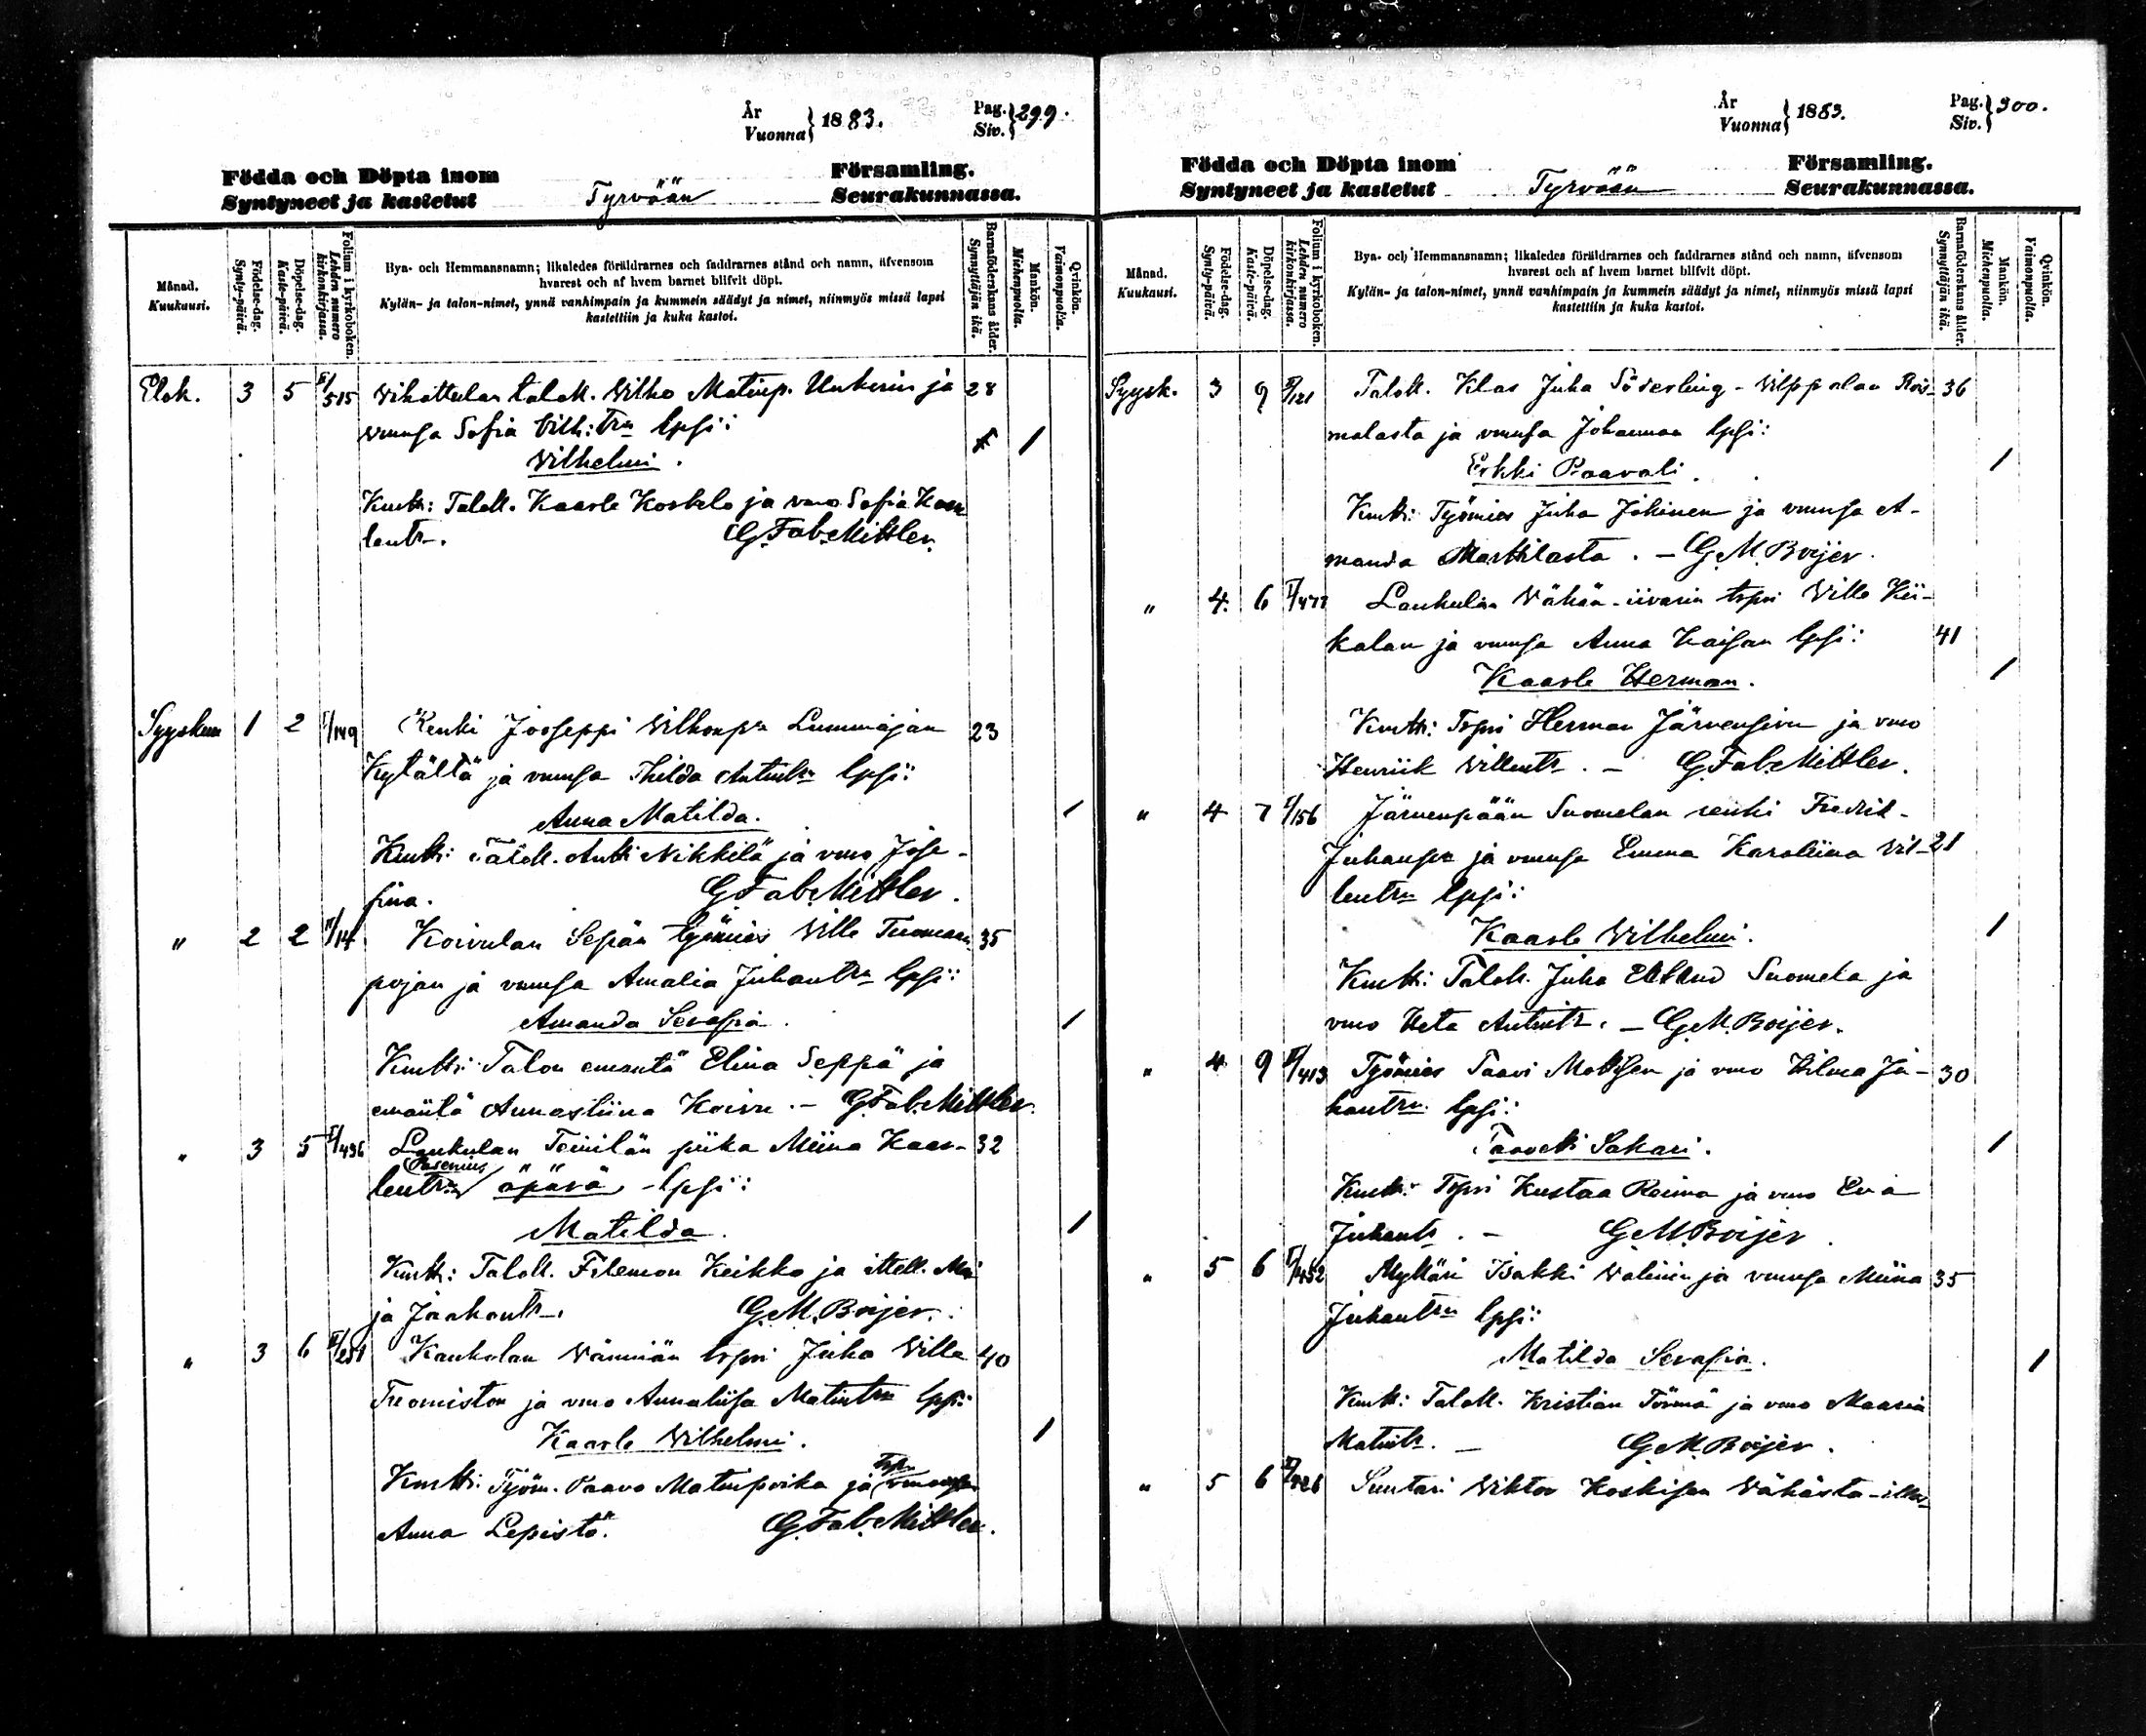 År
Vuonna } 1883.
Pag.
Siv. } 299.
Födda och Döpta inom Församling.
Syntyneet ja kastetut Tyrvään Seurakunnassa.
Månad.
Kuukausi.
Födelse-dag.
Synty-päivä.
Döpelse-dag.
Kaste-päivä.
Folium i kyrkoboken.
Lehden numero
kirkonkirjassa.
Bya- och Hemmansnamn; likaledes föräldrarnes och faddrarnes stånd och namn, äfvensom
hvarest och af hvem barnet blifvit döpt.
Kylän- ja talon-nimet, ynnä vanhimpain ja kummein säädyt ja nimet, niinmyös missä lapsi
kastettiin ja kuka kastoi.
Barnaföderskans ålder.
Synnyttäjän ikä.
Mankön.
Miehenpuolta.
Qvinkön.
Vaimonpuolta.
Elok. 3 5 515 taloll. Wilho Matinp. ja 28
vmnsa Sofia lpsi:
Wilhelmi. 1
Kmtt: Taloll. Kaarle Koskelo ja vmo Sofia Kaar
lentr. G.Fab.Mittler.
Syyskuu 1 2 I/149 Renki Jooseppi Wilhonpn Lummajan 23
Kytältä ja vmnsa Thilda Antintr lpsi:
Anna Matilda. 1
Kmtt: Taloll. Antti Nikkilä ja vmo Jose-
fina. G.Fab.Mittler.
" 2 2 14 Koivulan Sepän työmies Wille Tuomaan 35
pojan ja vmnsa Amalia Juhantrn lpsi:
Amanda Serafia. 1
Kmtt: Talon emäntä Elina Seppä ja
emäntä Annastiina Koivu. — G.Fab.Mittler.
" 3 5 I/436 Laukulan piika Miina Kaar- 32
lentrn äpärä lpsi:
Matilda. 1
Kmtt: Taloll. Filemon Keikko ja ittell. Mai
ja Jaakontr. G.M.Boijer.
" 3 6 251 Kaukolan Wänniän trpri Juho Wille 40
Tuomiston ja vmo Annaliisa Matintrn lpsi:
Kaarle Wilhelmi. 1
Kmtt: Työm. Paavo Matinpoika ja
Anna Lepistö. G.Fab.Mittler.
År
Vuonna } 1883.
Pag.
Siv. } 300.
Födda och Döpta inom Församling.
Syntyneet ja kastetut Tyrvään Seurakunnassa.
Månad.
Kuukausi.
Födelse-dag.
Synty-päivä.
Döpelse-dag.
Kaste-päivä.
Folium i kyrkoboken.
Lehden numero
kirkonkirjassa.
Bya- och Hemmansnamn; likaledes föräldrarnes och faddrarnes stånd och namn, äfvensom
hvarest och af hvem barnet blifvit döpt.
Kylän- ja talon-nimet, ynnä vanhimpain ja kummein säädyt ja nimet, niinmyös missä lapsi
kastettiin ja kuka kastoi.
Barnaföderskans ålder.
Synnyttäjän ikä.
Mankön.
Miehenpuolta.
Qvinkön.
Vaimonpuolta.
Syysk. 3 9 121 Taloll. Klas Juha Söderling-Wilppalan Rois- 36
malasta ja vmnsa Johannan lpsi:
Erkki Paavali. 1
Kmtt: Työmies Juha Jokinen ja vmnsa A-
manda Marttilasta. — G.M.Boijer.
" 4. 6 I/477 Laukulan Wähän-iivarin trpri Wille Kii-
kalan ja vmnsa Anna Kaisan lpsi: 41
Kaarle Herman. 1
Kmtt: Trpri Herman Järvensivu ja vmo
Henriik Willentr. — G.Fab.Mittler.
" 4 7 I/156 Järvenpään Suomelan renki Fredrik
Juhanpn ja vmnsa Emma Karoliina Wil- 21
lentrn lpsi:
Kaarle Wilhelmi. 1
Kmtt: Taloll. Juho Suomela ja
vmo Heta Antintr. — G.M.Boijer.
" 4 9 413 Työmies Taavi Mattisen ja vmo Hilma Ju- 30
hantrn lpsi:
Taavetti Sakari. 1
Kmtt: Trpri Kustaa Reima ja vmo Eva
Juhantr. — G.M.Boijer.
" 5 6 I/452 Mylläri Isakki Walinin ja vmnsa Miina 35
Juhantrn lpsi:
Matilda Serafia. 1
Kmtt: Taloll. Kristian Törmä ja vmo Maaria
Matintr. — G.M.Boijer.
" 5 6 426 Suutari Wiktor Koskisen Wähästä-